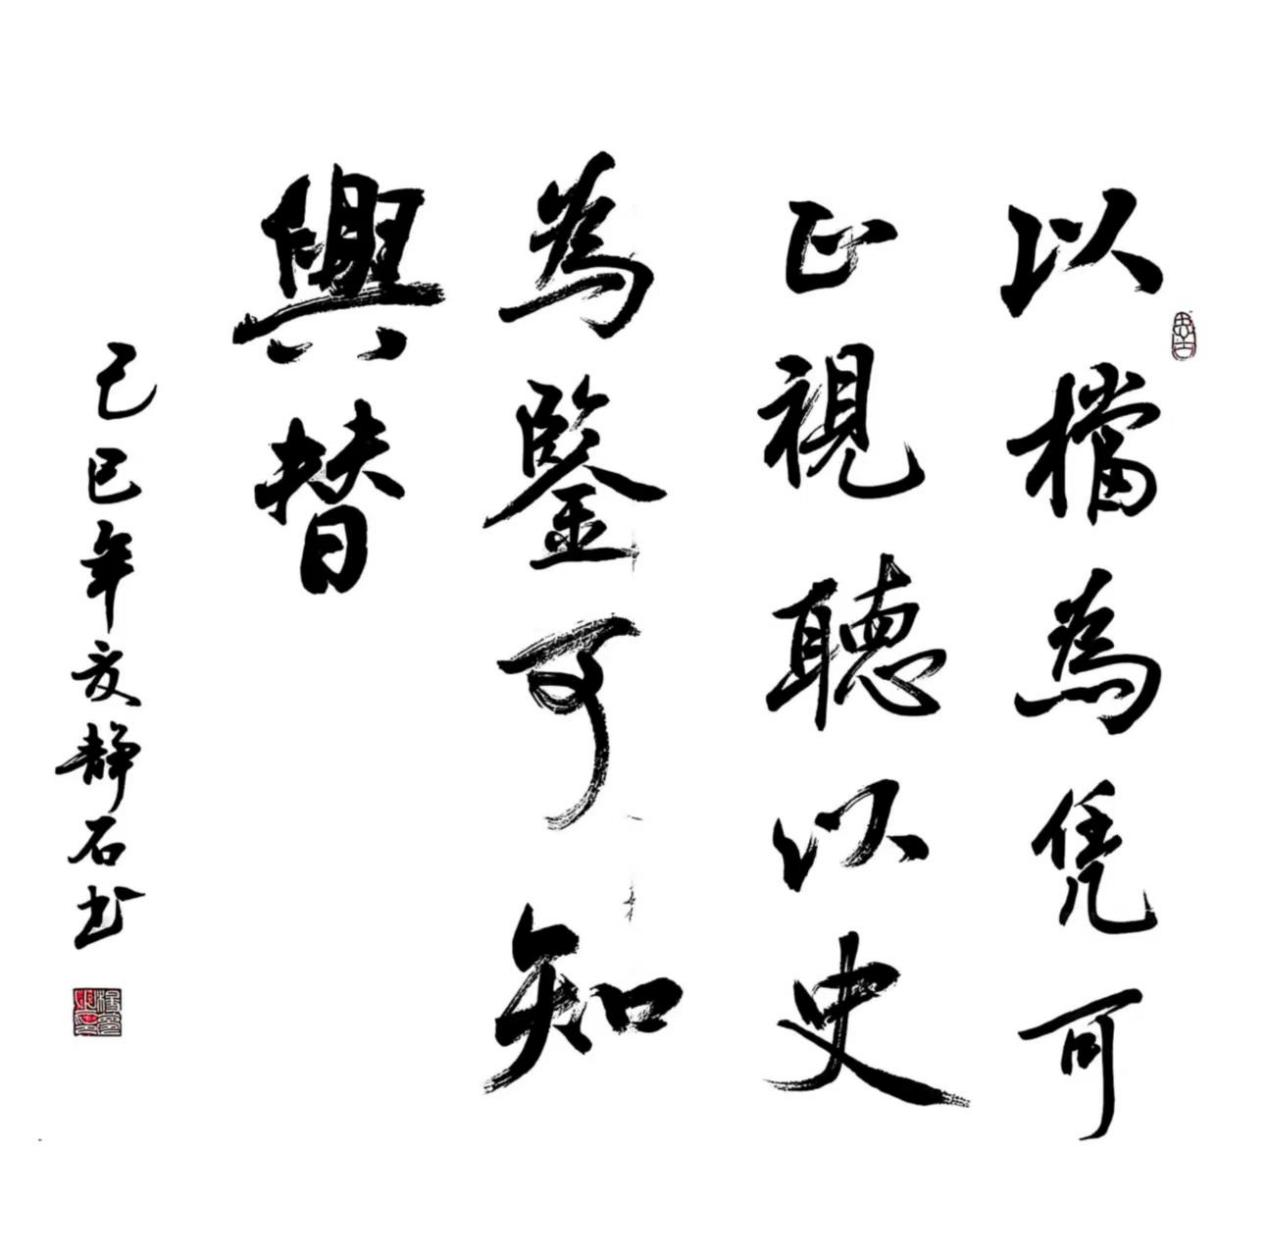 以檔為凭可
正視聽以史
為鑒可知
興替
乙巳年夏靜石书